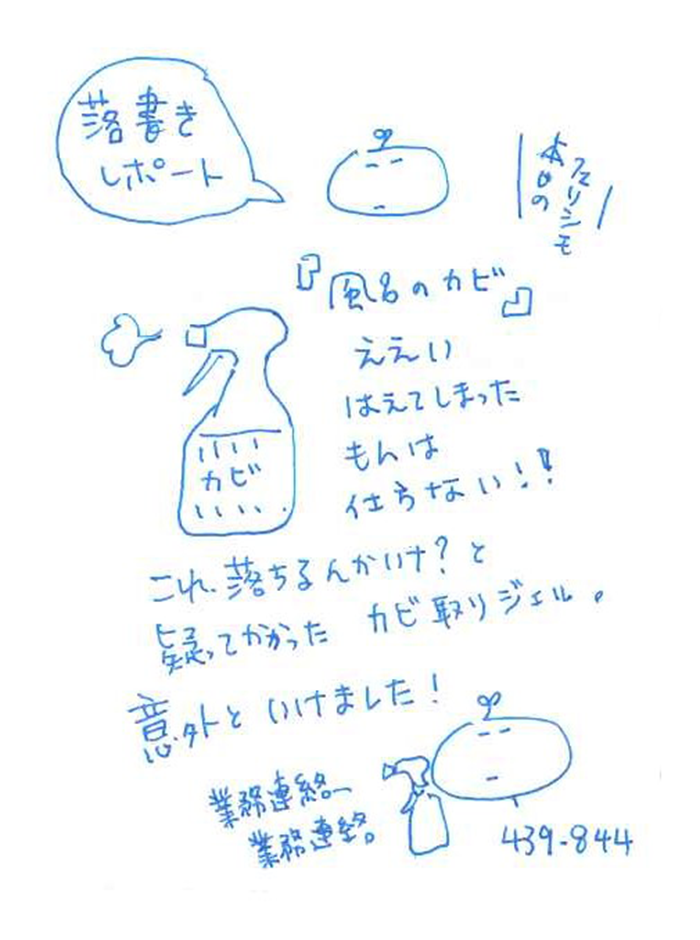 落書き
レポート
本日の
フェリシモ
『風呂のカビ』
ええい
はえてしまった
もんは
仕方ない!!
カビ
これ、落ちるんかいけ?と
疑ってかかった カビ取りジェル。
意外と いけました!
業務連絡〜
業務連絡。
439-844